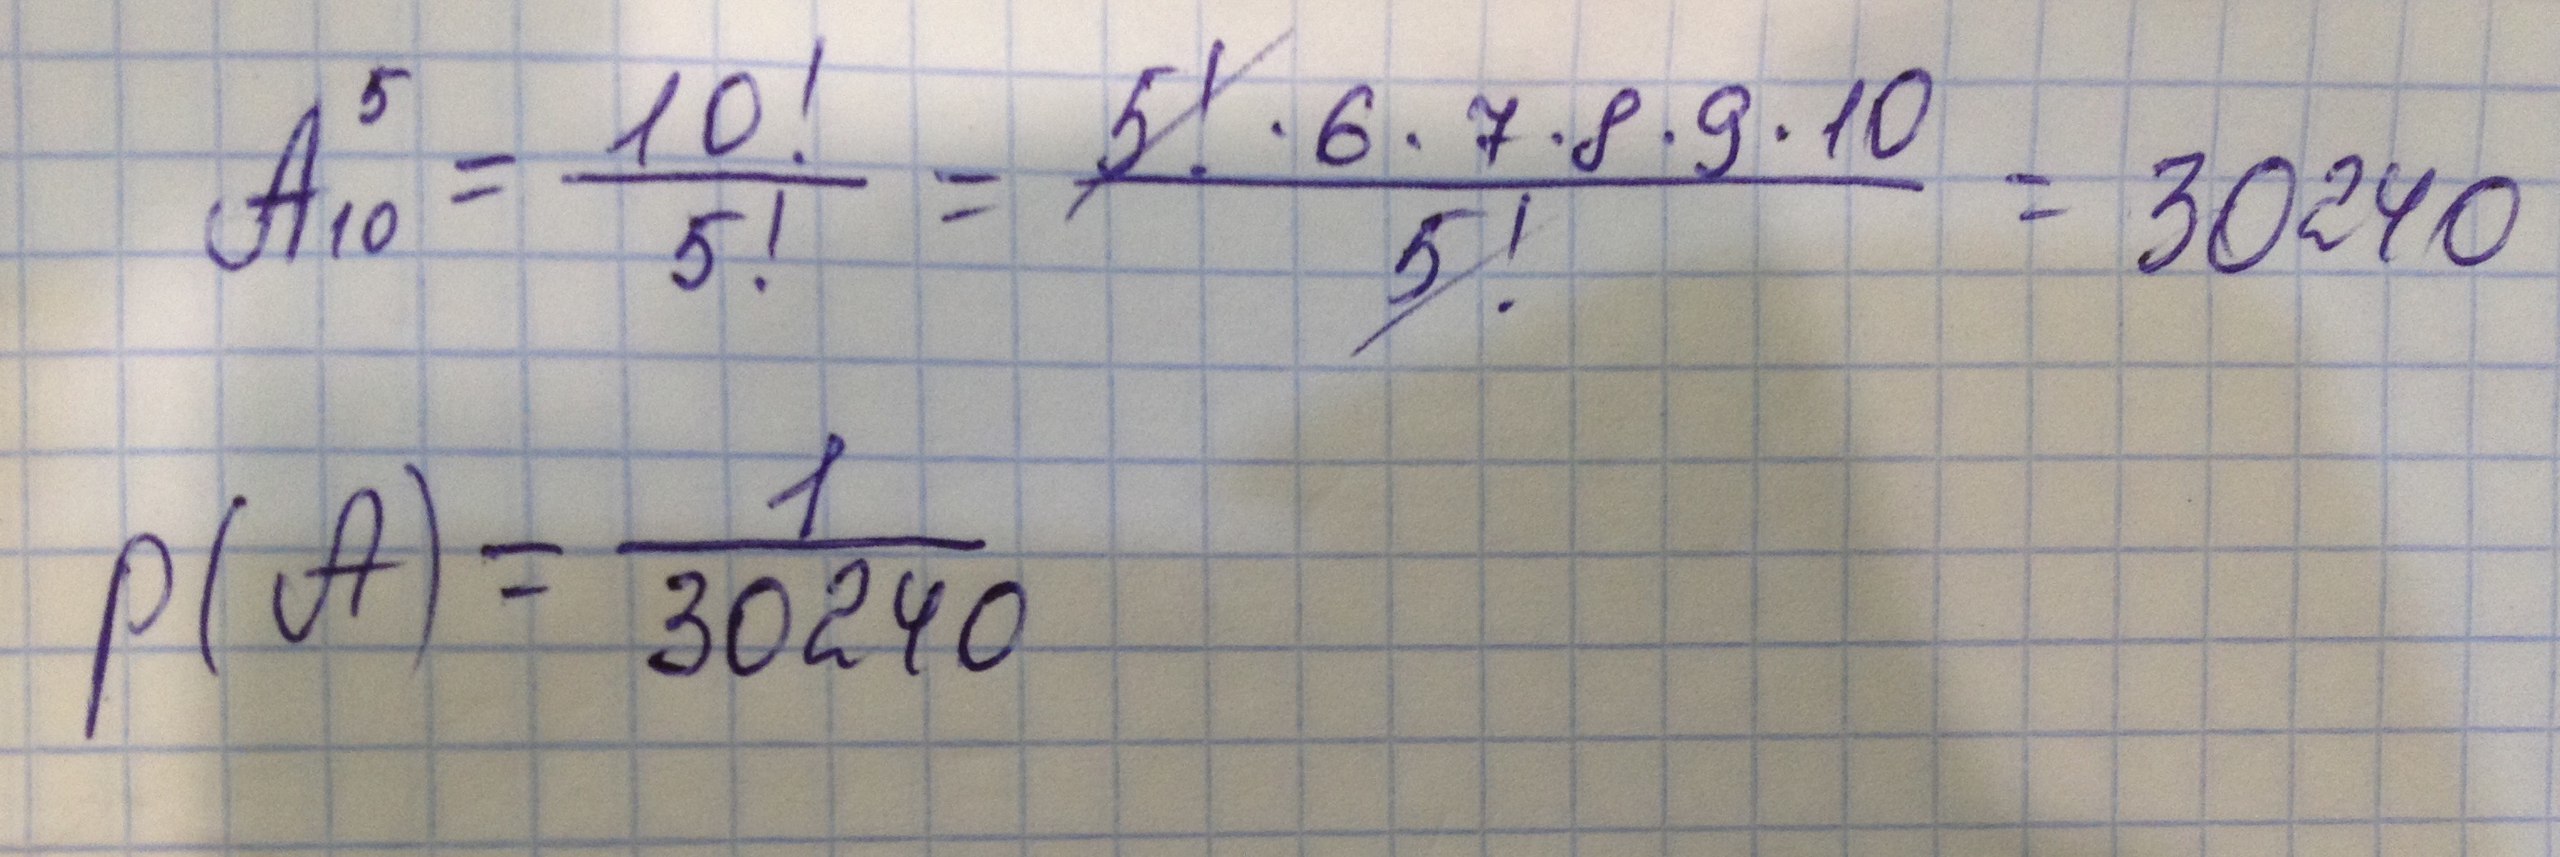 A₁₀⁵ = 10!/5! = 5!·6·7·8·9·10/5! = 30240
p(A) = 1/30240